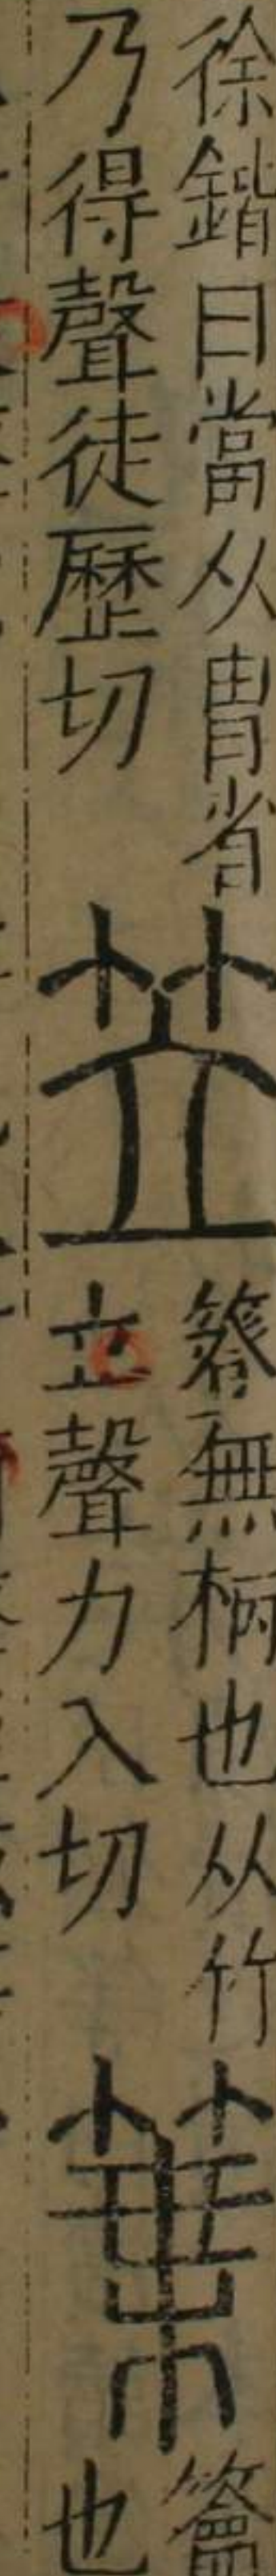 徐鍇曰當从冑省
乃得聲徒歷切
笠
簦無柄也从竹
立聲力入切
䈎
籥
也